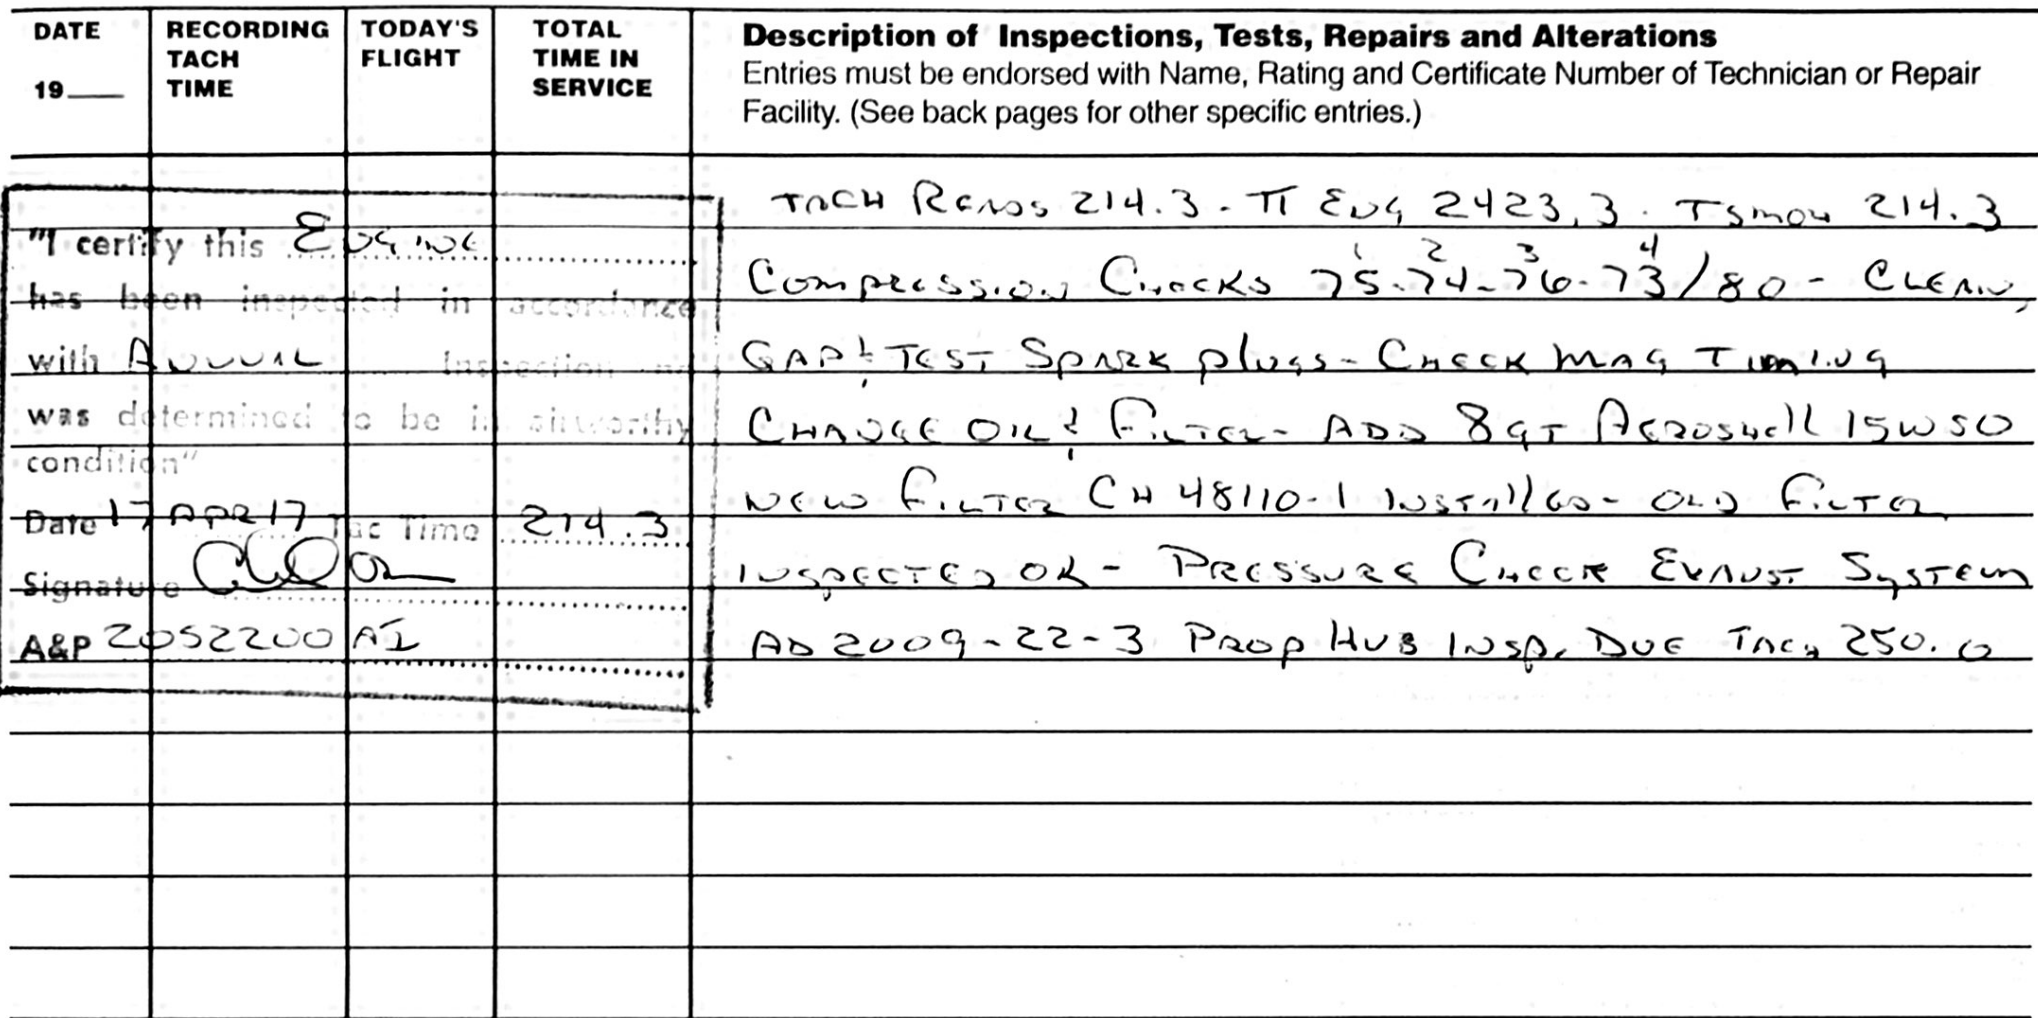 DATE
19
RECORDING
TACH
TIME
TODAY'S
FLIGHT
TOTAL
TIME IN
SERVICE
Description of Inspections, Tests, Repairs and Alterations
Entries must be endorsed with Name, Rating and Certificate Number of Technician or Repair
Facility. (See back pages for other specific entries.)
"I certify this ENGINE
has been inspected in accordance
with ANNUAL Inspection
was determined to be in airworthy
condition"
Date 17 APR 17 Tac Time 214.3
Signature
A&P 2052200 AI
TACH READS 214.3 - TT ENG 2423.3 - TSMOH 214.3
1 2 3 4
COMPRESSION CHECKS 75-74-76-73/80 - CLEAN,
GAP & TEST SPARK plugs - CHECK MAG TIMING
CHANGE OIL & FILTER - ADD 8 QT AEROSHELL 15W50
NEW FILTER CH 48110-1 INSTALLED - OLD FILTER
INSPECTED OK - PRESSURE CHECK EXAUST SYSTEM
AD 2009-22-3 PROP HUB INSP. DUE TACH 250.0